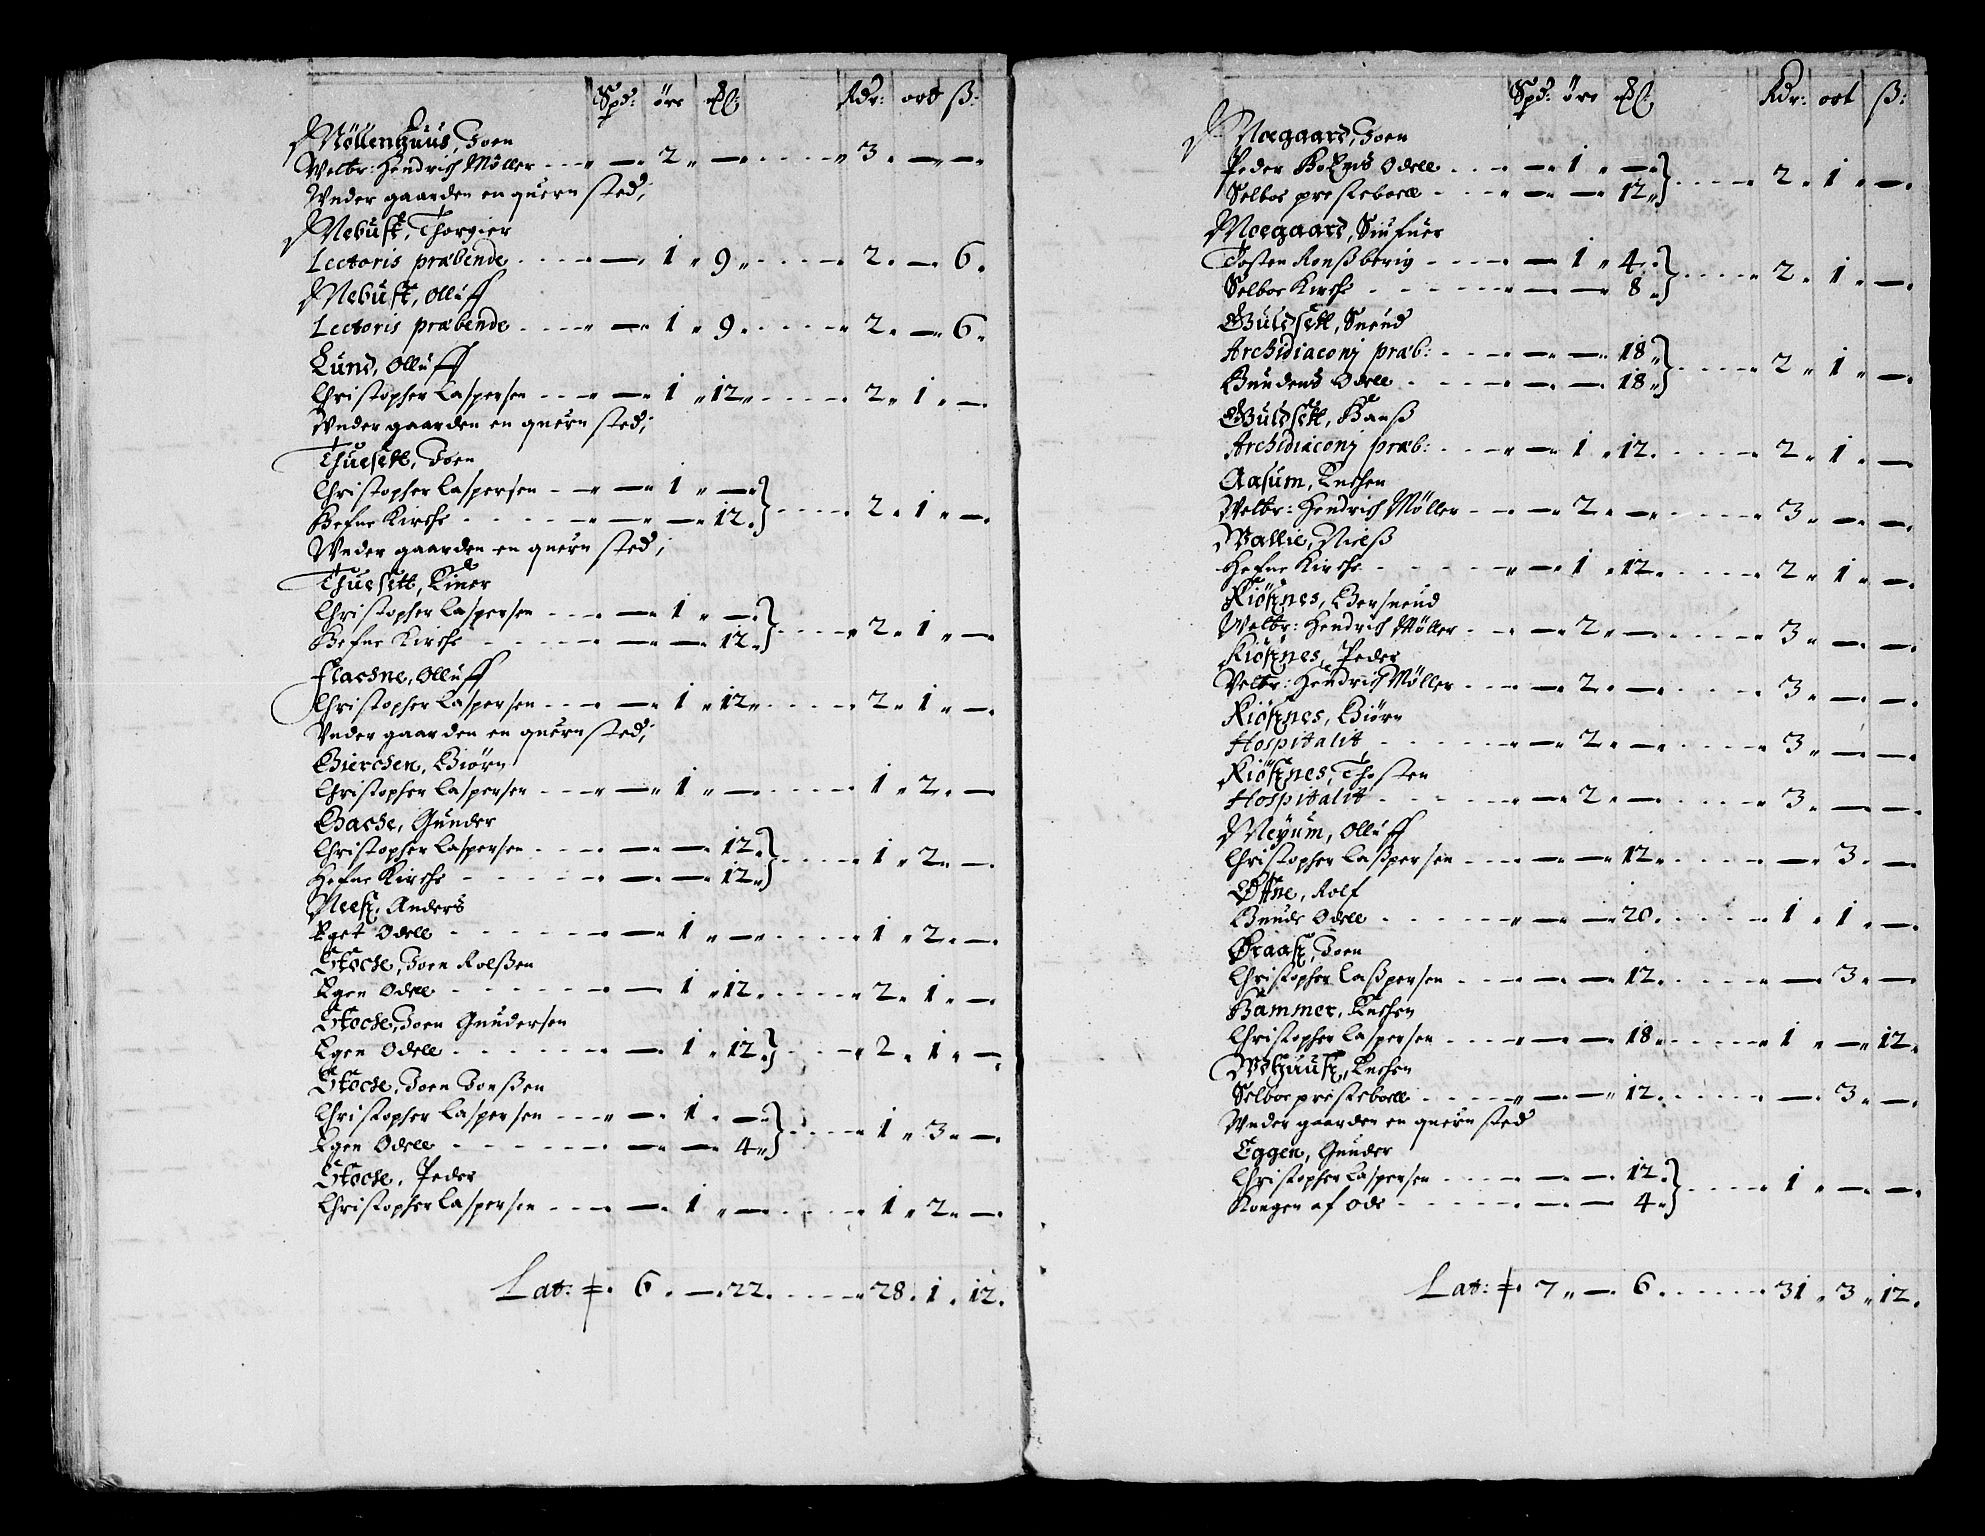 Spd: öre Rdr: ort ß:
Möllenhuus, Joen
Welbr: Hendrich Möller — 2 — 3 — —
Vnder gaarden en quern sted;
Nebust, Thorgier
Lectoris præbende — 1 9 2 — 6
Nebust, Olluff
Lectoris præbende — 1 9 2 — 6
Lund, Olluff
Christopher Caspersen — 1 12 2 1 —
Vnder gaarden en quern sted;
Thuesett, Joen
Christopher Caspersen — 1 —
Hefne Kirche — — 12 } 2 1 —
Vnder gaarden en quern sted;
Thuesett, Einer
Christopher Caspersen — 1 —
Hefne Kirche — — 12 } 2 1 —
Flachne, Olluff
Christopher Caspersen — 1 12 2 1 —
Vnder gaarden en quern sted;
Bierchen, Biörn
Christopher Caspersen — 1 — 1 2 —
Bache, Gunder
Christopher Caspersen — — 12
Hefne Kirche — — 12 } 1 2 —
Anders
Eget Odell — 1 — 1 2 —
Stöche, Joen Rolßen
Egen Odell — 1 12 2 1 —
Stöche, Joen Gundersen
Egen Odell — 1 12 } 2 1 —
Stöche, Joen Jonßen
Christopher Caspersen — 1 —
Egen Odell — — 4 } 1 3 —
Stöche, Peder
Christopher Caspersen — 1 — 1 2 —
Lat: 6 — 22 28 1 12
Spd: öre Rdr: ort ß:
Moegaard, Joen
Peder Odell — 1 —
Selboe presteboell — — 12 } 2 1 —
Moegaard, Siufuer
Tosten Ronßberig — 1 4
Selboe Kirche — — 8 } 2 1 —
Guldsett, Suend
Archidiaconj præb: — — 18
Bundens Odell — — 18 } 2 1 —
Guldsett, Hanß
Archidiaconj præb: — 1 12 2 1 —
Aasum, Enchen
Welbr: Hendrich Möller — 2 — 3 — —
Wallie, Nielß
Hefne Kirche — 1 12 2 1 —
Kiösnes, Bersuend
Welbr: Hendrich Möller — 2 — 3 — —
Kiösnes, Peder
Velbr: Hendrich Möller — 2 — 3 — —
Kiösnes, Biörn
Hospitalit — 2 — 3 — —
Kiösnes, Thosten
Hospitalit — 2 — 3 — —
Meyum, Olluff
Christopher Caßpersen — — 12 — 3 —
Öffne, Rolf
Bunde Odell — — 20 1 1 —
Joen
Christopher Caßpersen — — 12 — 3 —
Hammer, Enchen
Christopher Caspersen — — 18 1 — 12
Enchen
Selboe presteboell — — 12 — 3 —
Vnder gaarden en quern sted
Eggen, Gunder
Christopher Caspersen — — 12
Kongen af Ode — — 4 } 1 — —
Lat: 7 — 6 31 3 12